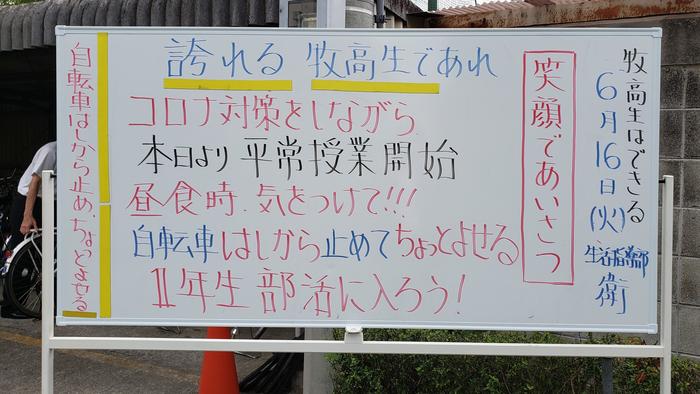 牧高生はできる
6月16日(火)
生活指導部
衛
笑顔であいさつ
誇れる 牧高生であれ
コロナ対策をしながら
本日より平常授業開始
昼食時、気をつけて!!!
自転車はしから止めてちょっとよせる
1年生部活に入ろう!
自転車はしから止め、ちょっとよせる